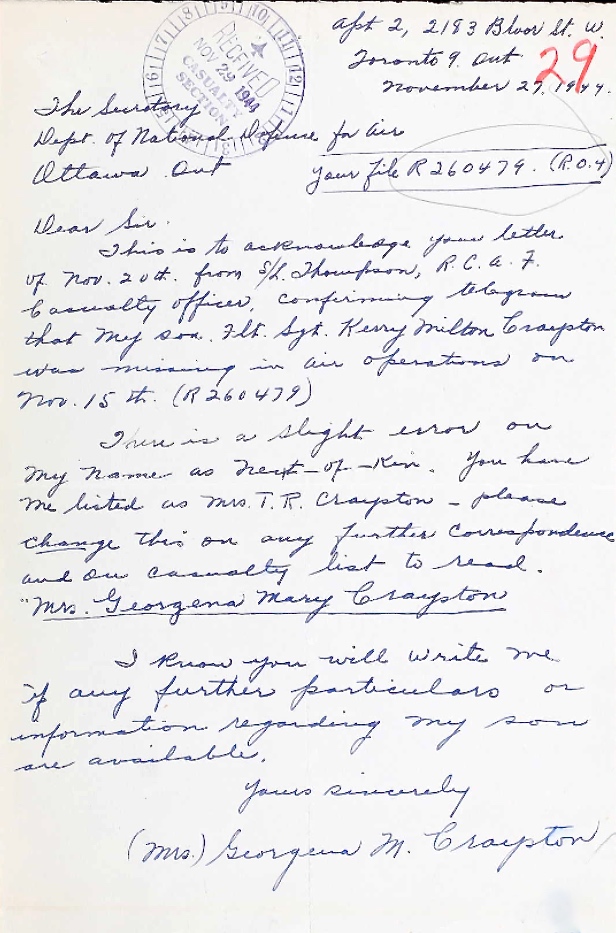 Apt 2, 2183 Bloor St. W.
Toronto 9. Ont
29
November 27, 1944.
RECEIVED
NOV 29 1944
CASUALTY
SECTION
The Secretary
Dept. of National Defense for Air
Ottawa Ont
Your file R 260479. (R.O.4)
Dear Sir.
This is to acknowledge your letter
of Nov. 20th. from S/L. Thompson, R.C.A.F.
Casualty officer, confirming telegram
that my son. Flt. Sgt. Kerry Milton Crayston
was missing in air operations on
Nov. 15th. (R260479)
There is a slight error on
my name as next-of-kin. You have
me listed as Mrs. T. R. Crayston - please
change this on any further correspondence
and on casualty list to read.
"Mrs. Georgena Mary Crayston
I know you will write me
if any further particulars or
information regarding my son
are available.
Yours sincerely
(Mrs.) Georgena M. Crayston